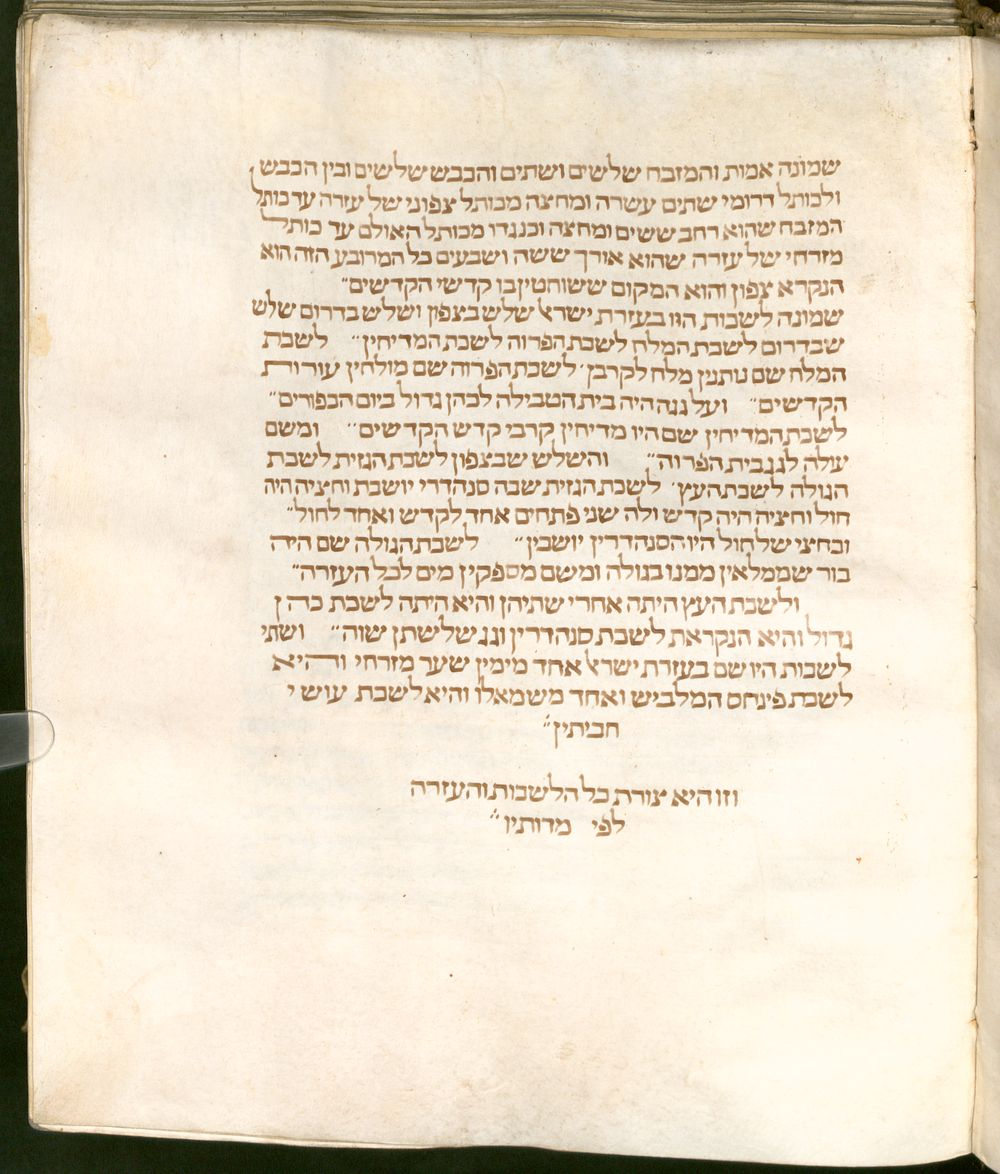 שמונה אמות והמזבח שלשים ושתים והכבש שלשים ובין הכבש
ולכותל דרומי שתים עשרה ומחצה מכותל צפוני של עזרה עד כותל
המזבח שהוא רחב ששים ומחצה וכנגדו מכותל האולם עד כותל
מזרחי של עזרה שהוא אורך ששה ושבעים כל המרובע הזה הוא
הנקרא צפון והוא המקום ששוחטין בו קדשי הקדשים״
שמונה לשכות היו בעזרת ישראל שלש בצפון ושלש בדרום שלש
שבדרום לשכת המלח לשכת הפרוה לשכת המדיחין״ לשכת
המלח שם נותנין מלח לקרבן׳ לשכת הפרוה שם מולחין עורות
הקדשים״ ועל גגה היה בית הטבילה לכהן גדול ביום הכפורים״
לשכת המדיחין שם היו מדיחין קרבי קדש הקדשים״ ומשם
עולה לגג בית הפרוה״ והשלש שבצפון לשכת הגזית לשכת
הגולה לשכת העץ׳ לשכת הגזית שבה סנהדרי יושבת וחציה היה
חול וחציה היה קדש ולה שני פתחים אחד לקדש ואחד לחול״
ובחצי של חול היו הסנהדרין יושבין״ לשכת הגולה שם היה
בור שממלאין ממנו בגולה ומשם מספקין מים לכל העזרה״
ולשכת העץ היתה אחרי שתיהן והיא היתה לשכת כהן
גדול והיא הנקראת לשכת סנהדרין וגג שלשתן שוה״ ושתי
לשכות היו שם בעזרת ישראל אחד מימין שער מזרחי והיא
לשכת פינחס המלביש ואחד משמאלו והיא לשכת עושי
חביתין״
וזו היא צורת כל הלשכות והעזרה
לפי מדותיו״